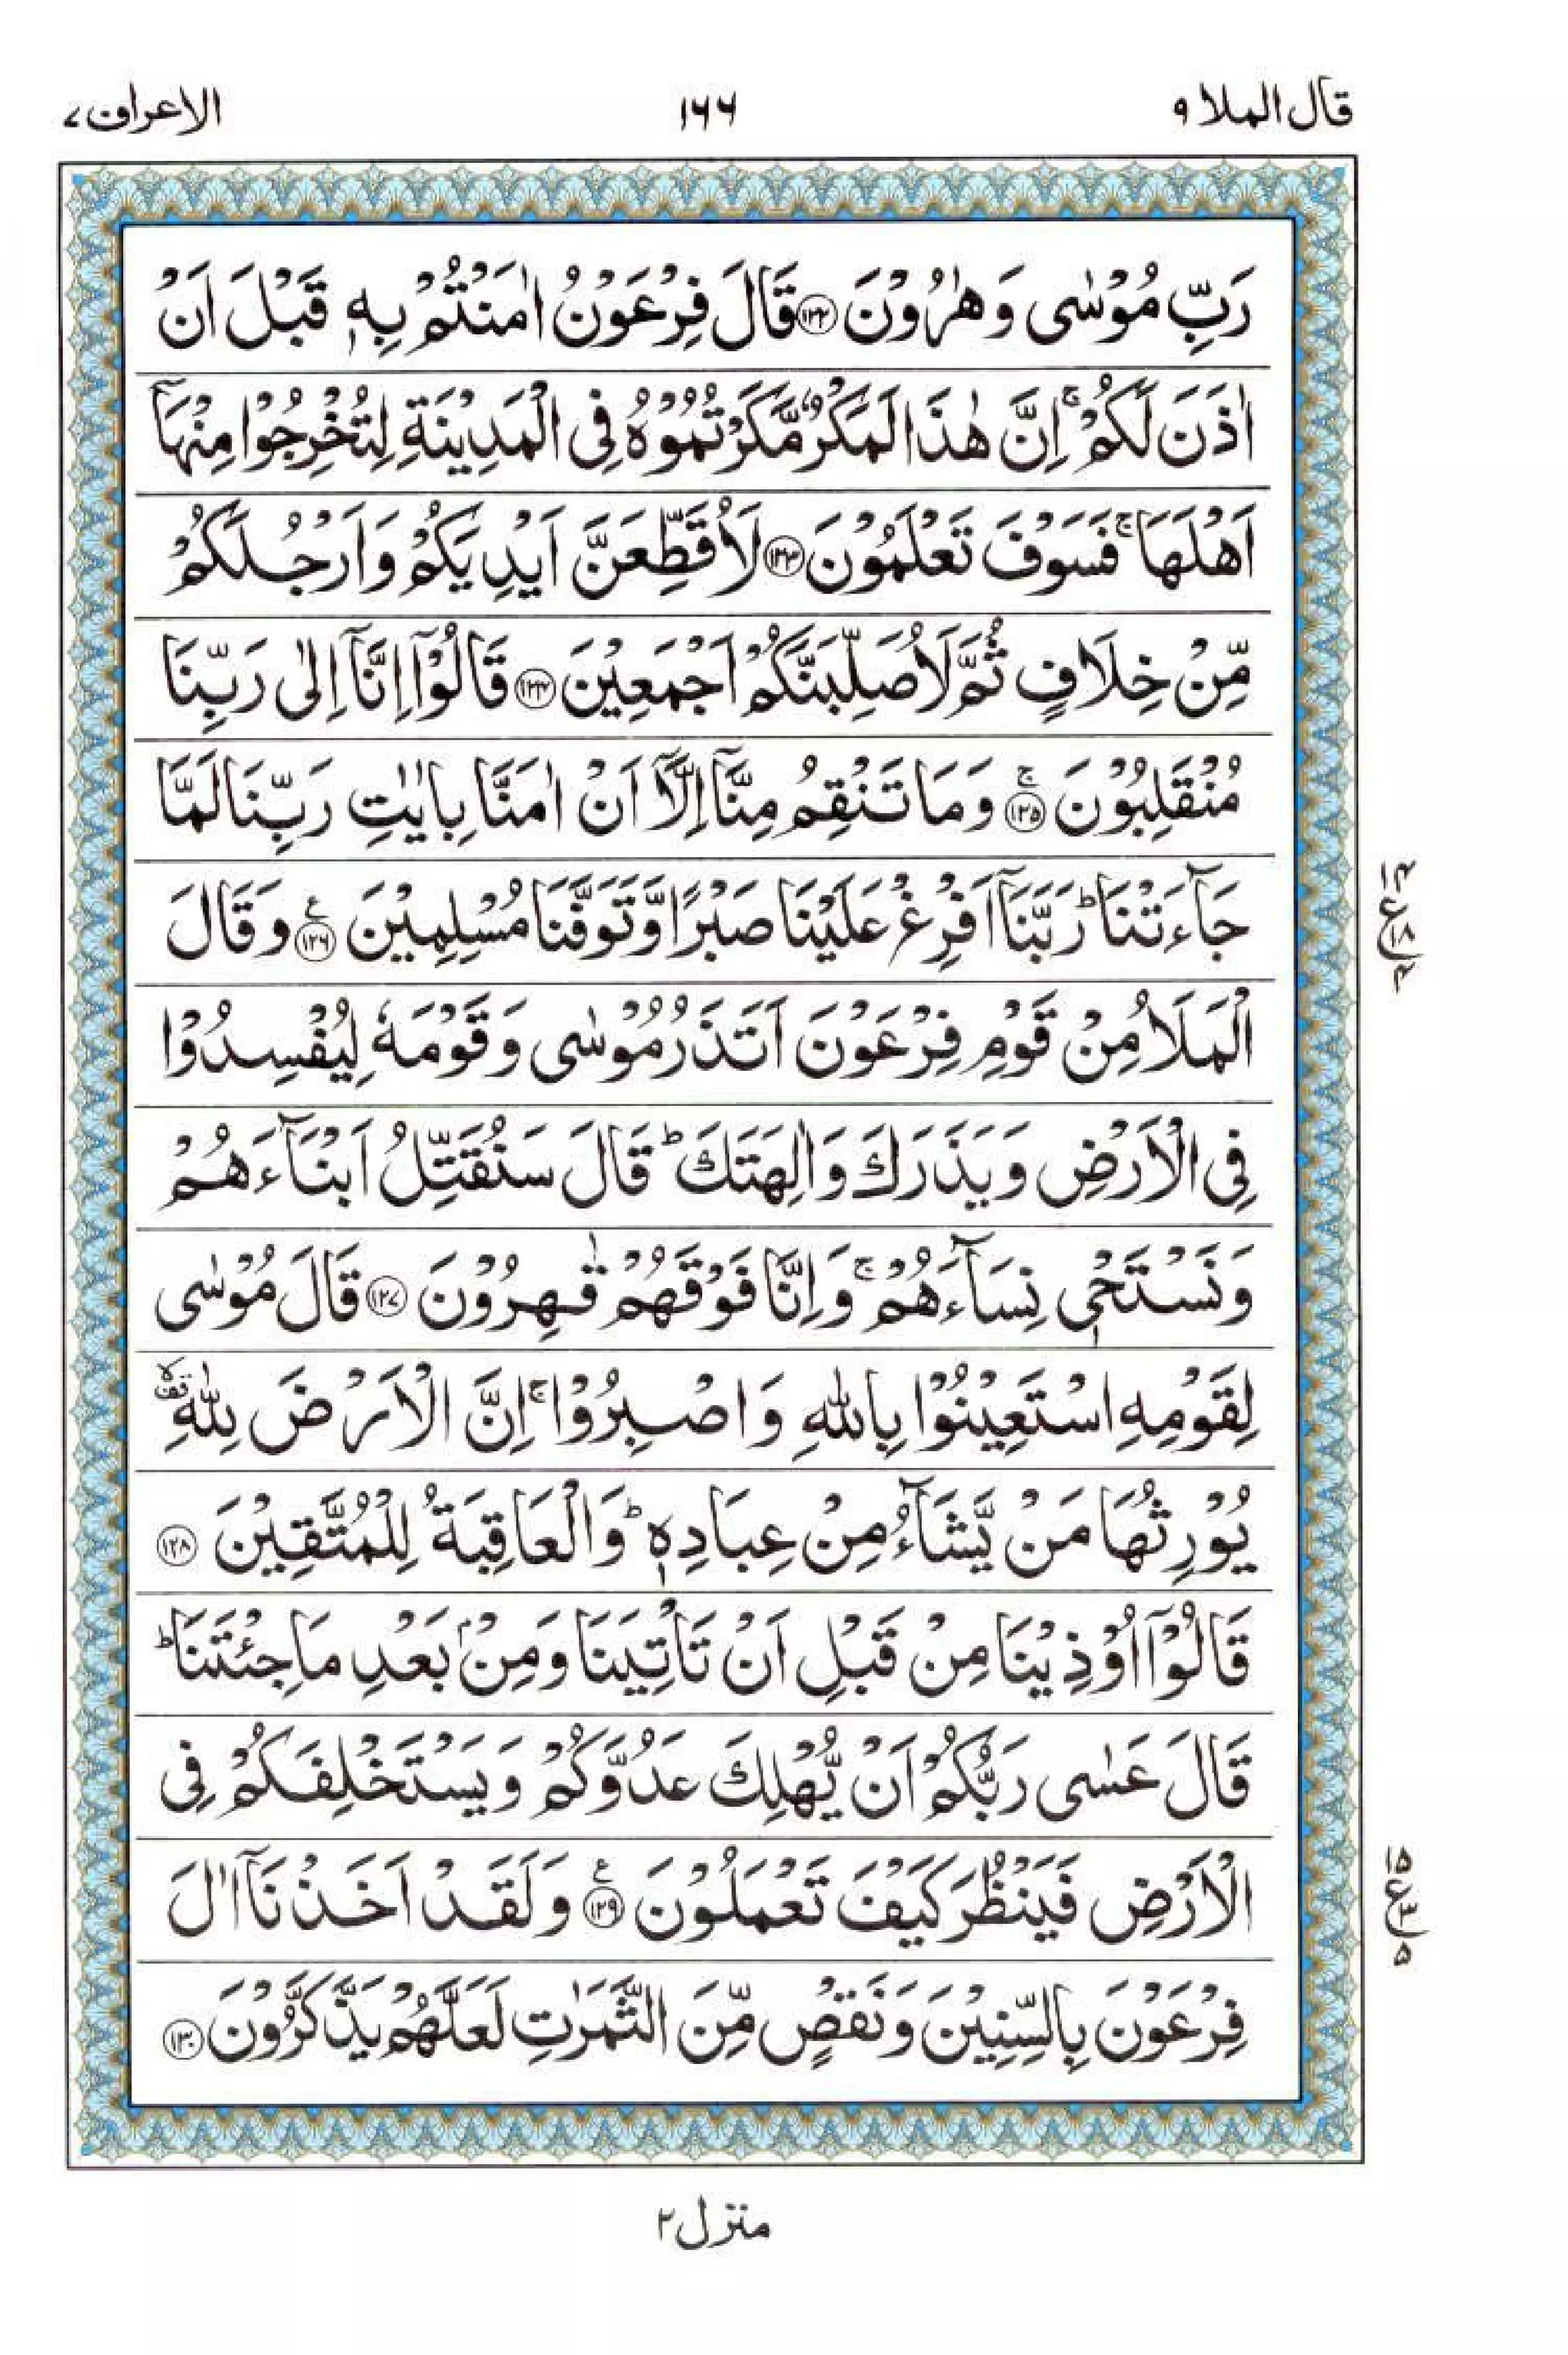 قال الملا ۹
۱۶۶
الاعراف ۷
رَبِّ مُوْسٰى وَهٰرُوْنَ ۝۱۲۲ قَالَ فِرْعَوْنُ اٰمَنْتُمْ بِهٖ قَبْلَ اَنْ
اٰذَنَ لَكُمْ ۚ اِنَّ هٰذَا لَمَكْرٌ مَّكَرْتُمُوْهُ فِى الْمَدِيْنَةِ لِتُخْرِجُوْا مِنْهَاۤ
اَهْلَهَا ۚ فَسَوْفَ تَعْلَمُوْنَ ۝۱۲۳ لَاُقَطِّعَنَّ اَيْدِيَكُمْ وَاَرْجُلَكُمْ
مِّنْ خِلَافٍ ثُمَّ لَاُصَلِّبَنَّكُمْ اَجْمَعِيْنَ ۝۱۲۴ قَالُوْۤا اِنَّاۤ اِلٰى رَبِّنَا
مُنْقَلِبُوْنَ ۚ۝۱۲۵ وَمَا تَنْقِمُ مِنَّاۤ اِلَّاۤ اَنْ اٰمَنَّا بِاٰيٰتِ رَبِّنَا لَمَّا
جَآءَتْنَا ؕ رَبَّنَاۤ اَفْرِغْ عَلَيْنَا صَبْرًا وَّتَوَفَّنَا مُسْلِمِيْنَ ۝۱۲۶ ع وَقَالَ
الْمَلَاُ مِنْ قَوْمِ فِرْعَوْنَ اَتَذَرُ مُوْسٰى وَقَوْمَهٗ لِيُفْسِدُوْا
فِى الْاَرْضِ وَيَذَرَكَ وَاٰلِهَتَكَ ؕ قَالَ سَنُقَتِّلُ اَبْنَآءَهُمْ
وَنَسْتَحْىٖ نِسَآءَهُمْ ۚ وَاِنَّا فَوْقَهُمْ قٰهِرُوْنَ ۝۱۲۷ قَالَ مُوْسٰى
لِقَوْمِهِ اسْتَعِيْنُوْا بِاللّٰهِ وَاصْبِرُوْا ۚ اِنَّ الْاَرْضَ لِلّٰهِ ۙ۫
يُوْرِثُهَا مَنْ يَّشَآءُ مِنْ عِبَادِهٖ ؕ وَالْعَاقِبَةُ لِلْمُتَّقِيْنَ ۝۱۲۸
قَالُوْۤا اُوْذِيْنَا مِنْ قَبْلِ اَنْ تَاْتِيَنَا وَمِنْۢ بَعْدِ مَا جِئْتَنَا ؕ
قَالَ عَسٰى رَبُّكُمْ اَنْ يُّهْلِكَ عَدُوَّكُمْ وَيَسْتَخْلِفَكُمْ فِى
الْاَرْضِ فَيَنْظُرَ كَيْفَ تَعْمَلُوْنَ ۝۱۲۹ ع وَلَقَدْ اَخَذْنَاۤ اٰلَ
فِرْعَوْنَ بِالسِّنِيْنَ وَنَقْصٍ مِّنَ الثَّمَرٰتِ لَعَلَّهُمْ يَذَّكَّرُوْنَ ۝۱۳۰
منزل ۲